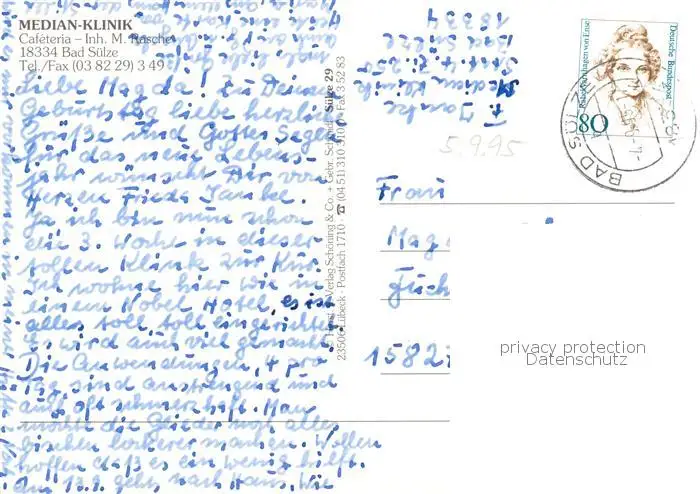 MEDIAN-KLINIK
Caféteria – Inh. M. Rasche
18334 Bad Sülze
Tel./Fax (03 82 29) 3 49
Liebe Magda! Zu Deinem
Geburtstag liebe herzliche
Grüße und Gottes Segen
für das neue Lebens-
jahr wünscht Dir von
Herzen Frieda Janke.
Ja ich bin nun schon
die 3. Woche in dieser
tollen Klinik zur Kur
Ich wohne hier wie in
einem Nobel Hotel, es ist
alles toll toll eingerichtet
Es wird auch viel gemacht
Die Anwendungen, 4 pro
Tag sind anstrengend und
auch oft schmerzhaft. Man
möchte die Glieder noch alle
bischen lockerer machen. Wollen
hoffen daß es ein wenig hilft.
Am 13.9. gehts nach Haus. Wie
Verlag Schöning & Co. + Gebr. Schmidt · Sülze 29
23506 Lübeck · Postfach 1710 · ☎ (04 51) 310 310 · Fax 3 52 83
F. Janke
Median Klinik
Bad Sülze
18334
5.9.95
Deutsche Bundespost
Rahel Varnhagen von Ense
80
BAD SÜLZE
Frau
Mag
Fuch
15827
privacy protection
Datenschutz